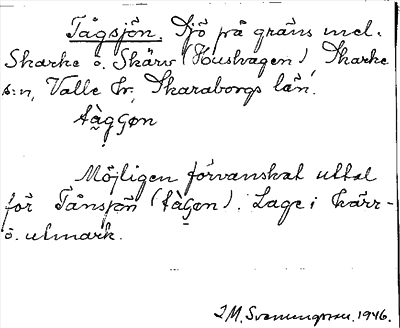 Tågsjön. Sjö på gräns mel.
Skarke o. Skärv (Hushagen), Skarke
s:n, Valle hr, Skaraborgs län.
tàg̣ɡɷn
Möjligen förvanskat uttal
för Tånsjön (tàɡ̣ɷn). Lage i kärr-
o. utmark.
I M. Svenungsson. 1946.